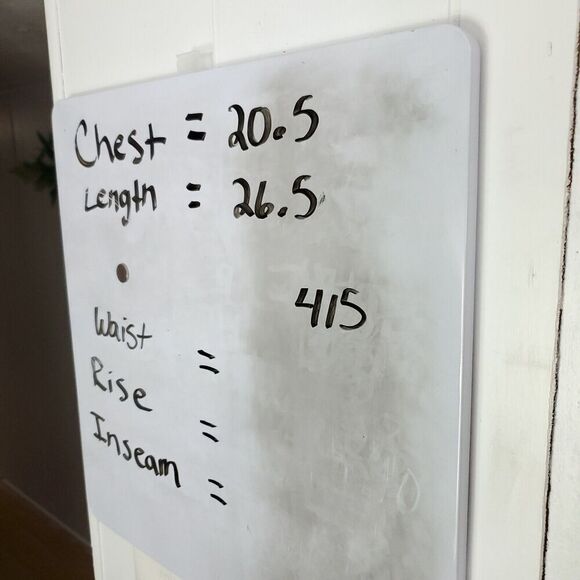 Chest = 20.5
Length = 26.5
415
Waist =
Rise =
Inseam =